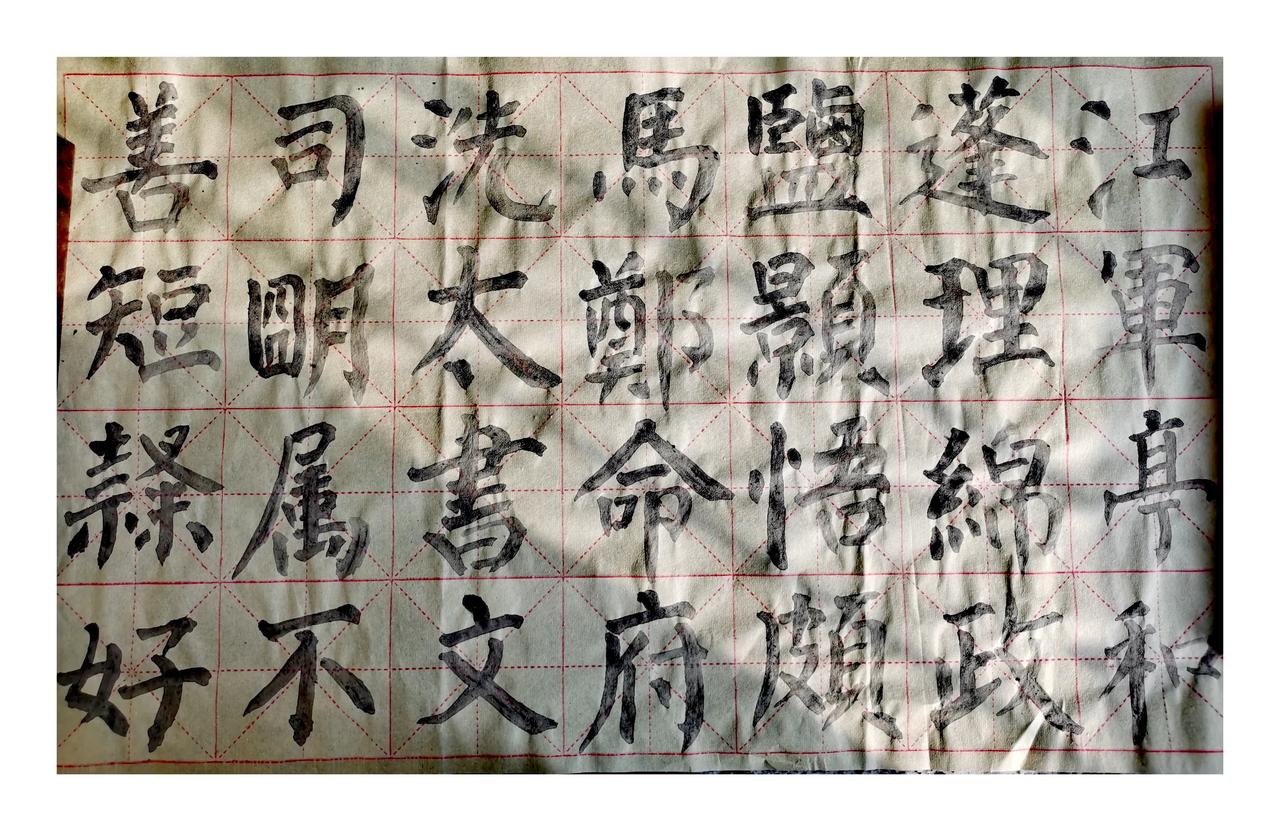 江軍亭和
蓬理綿政
鹽顥悟頗
馬鄭命府
洗太書文
司朙属不
善短隸好